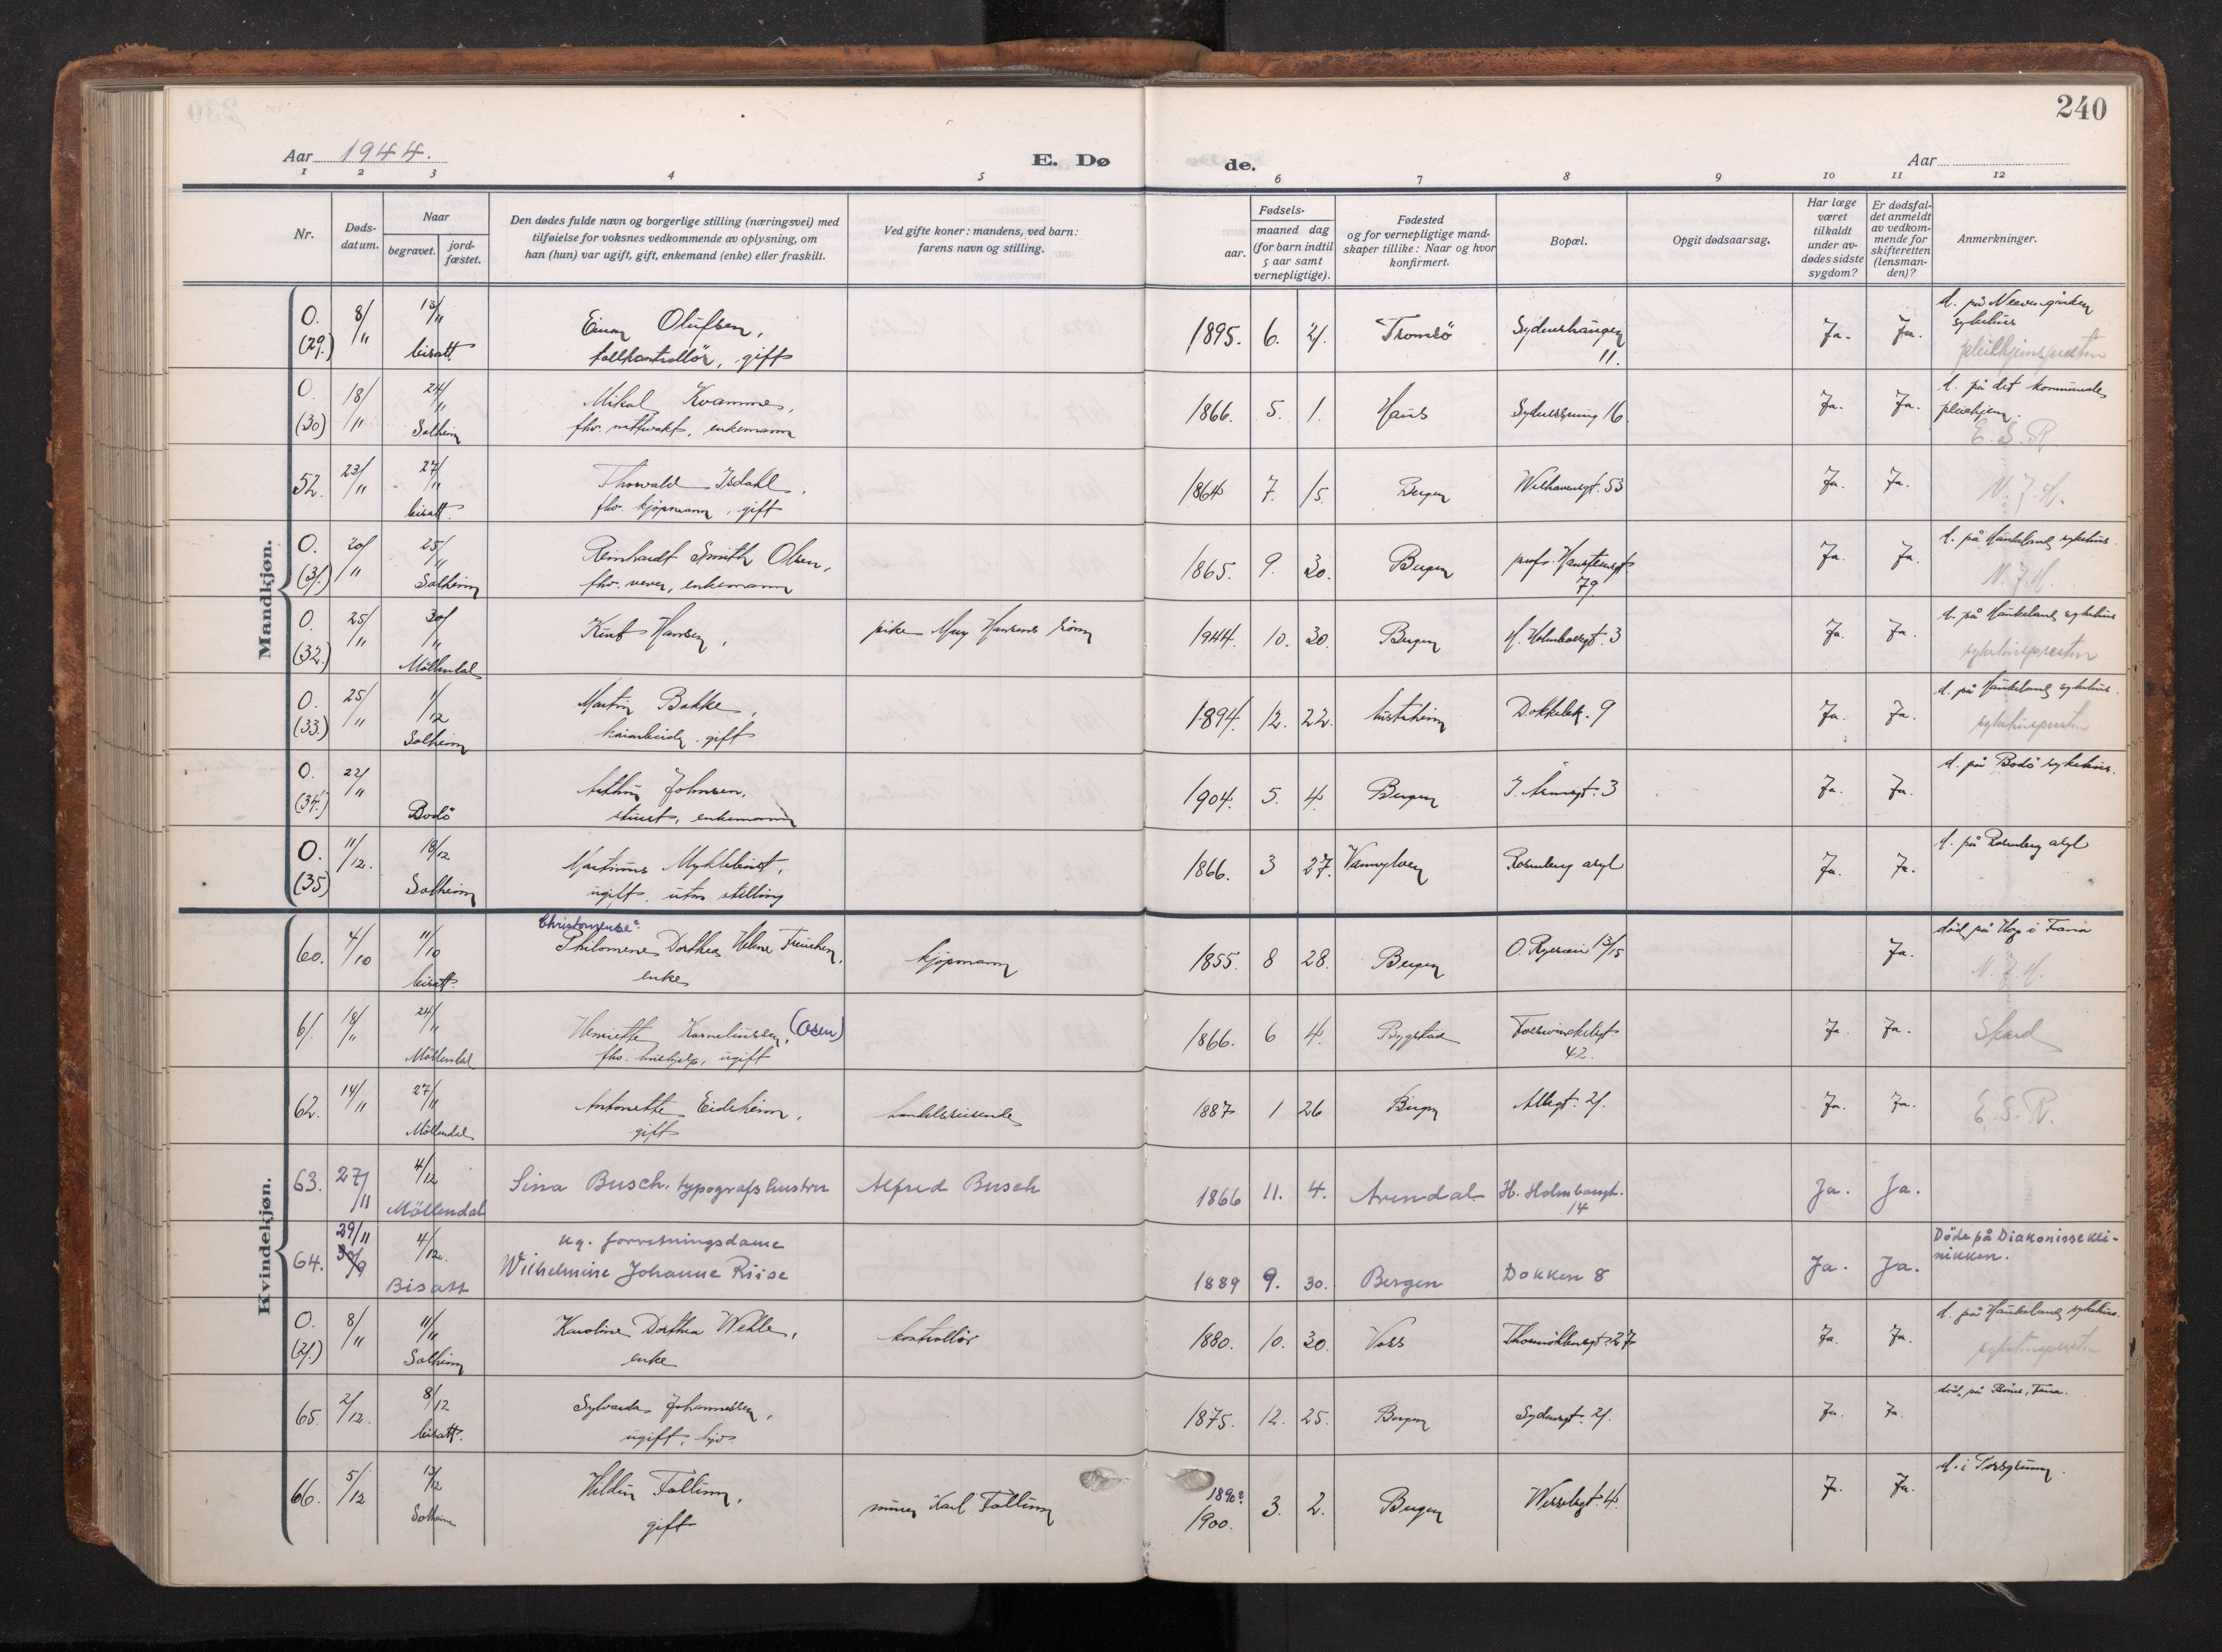 240
Aar 1944.
E. Dø
de.
Aar
1 2 3 4 5 6 7 8 9 10 11 12
Nr.
Døds-
datum.
Naar
begravet.
jord-
fæstet.
Den dødes fulde navn og borgerlige stilling (næringsvei) med
tilføielse for voksnes vedkommende av oplysning, om
han (hun) var ugift, gift, enkemand (enke) eller fraskilt.
Ved gifte koner: mandens, ved barn:
farens navn og stilling.
Fødsels-
aar.
maaned dag
(for barn indtil
5 aar samt
vernepligtige).
Fødested
og for vernepligtige mand-
skaper tillike: Naar og hvor
konfirmert.
Bopæl.
Opgit dødsaarsag.
Har læge
været
tilkaldt
under av-
dødes sidste
sygdom?
Er dødsfal-
det anmeldt
av vedkom-
mende for
skifteretten
(lensman-
den)?
Anmerkninger.
Mandkjøn.
O. (29.) 8/11 13/11 bisatt.
Einar Olufsen,
gift
1895. 6. 21. Tromsö
11. Ja. Ja.
d. på Neevengården
sykehus
O. (30) 18/11 24/11 Solheim
Mikal Kvammes,
fhv. nattvakt, enkemann
1866. 5. 1. Haus
16. Ja. Ja.
d. på det kommunale
pleiehjem.
E. S. R.
52. 23/11 27/11 bisatt.
Thorvald Isdahl,
fhv. kjøpmann, gift
1864 7. 15. Bergen
Welhavensgt. 53 Ja. Ja.
N. J. H.
O. (31.) 20/11 25/11 Solheim
Reinhardt Smith Olsen,
fhv. vever, enkemann
1865. 9. 30. Bergen
prof. Hansteensgt.
79. Ja. Ja.
d. på Haukeland sykehus.
N. J. H.
O. (32.) 25/11 30/11 Möllendal
Knut Hansen,
pike May Hansens sönn
1944. 10. 30. Bergen
H. Holmboesgt. 3 Ja. Ja.
d. på Haukeland sykehus
sykehuspresten
O. (33.) 25/11 1/12 Solheim
Martin Bakke,
kaiarbeider, gift
1894. 12. 22.
9 Ja. Ja.
d. på Haukeland sykehus.
sykehuspresten
O. (34.) 22/11 Bodö
Arthur Johnsen,
stuert, enkemann
1904. 5. 4. Bergen
3 Ja. Ja.
d. på Bodö sykehus.
O. (35) 11/12. 18/12 Solheim
Martinus Myklebust,
ugift, uten stilling
1866. 3 27.
Rosenberg asyl Ja. Ja.
d. på Rosenberg asyl
Kvindekjøn.
60. 4/10 11/10 bisatt.
Philomene Dorthea Helene
enke
kjøpmann
1855. 8 28. Bergen
13/15 Ja.
död på Hop i Fana
N. J. H.
61. 18/11 24/11 Möllendal
Henriette Korneliussen, (Osen)
fhv. ugift
1866. 6 4. Bygstad
42. Ja. Ja.
Skard
62. 14/11 27/11 Möllendal
Antonette Eidsheim,
gift
handelsreisende
1887 1 26 Bergen
Allégt. 21. Ja. Ja.
E. S. R.
63. 27/11 4/12 Möllendal
Sina Busch, typografshustru
Alfred Busch
1866 11. 4. Arendal
H. Holmboesgt.
14 Ja. Ja.
64. 29/11 30/9 4/12. Bisatt
ug. forretningsdame
Wilhelmine Johanne Riise
1889 9. 30. Bergen
Dokken 8 Ja. Ja.
Döde på Diakonissekli-
nikken.
O. (21.) 8/11 11/11 Solheim
Karoline Dorthea Wehle,
enke
kontrollör
1880. 10. 30. Voss
Thormöhlensgt. 27 Ja. Ja.
d. på Haukeland sykehus.
sykehuspresten
65. 2/12. 8/12 bisatt.
Johannessen,
ugift,
1875. 12. 25. Bergen
Sydnesgt. 21. Ja. Ja.
66. 5/12 13/12 Solheim
gift
murer Karl
1890?
1900. 3. 2. Bergen
4. Ja. Ja.